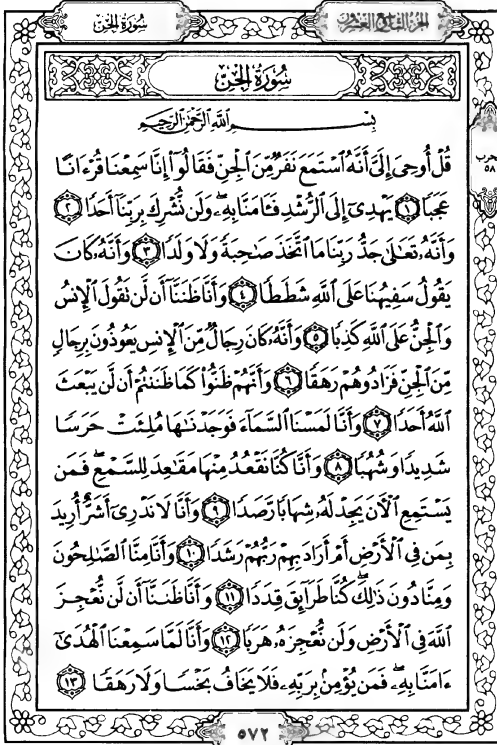 الجزء التاسع والعشرون
سورة الجن
سُورَةُ الجِنّ
بِسْمِ اللَّهِ الرَّحْمَٰنِ الرَّحِيمِ
قُلْ أُوحِىَ إِلَىَّ أَنَّهُ ٱسْتَمَعَ نَفَرٌ مِّنَ ٱلْجِنِّ فَقَالُوٓا۟ إِنَّا سَمِعْنَا قُرْءَانًا
عَجَبًا ١ يَهْدِىٓ إِلَى ٱلرُّشْدِ فَـَٔامَنَّا بِهِۦ ۖ وَلَن نُّشْرِكَ بِرَبِّنَآ أَحَدًا ٢
وَأَنَّهُۥ تَعَٰلَىٰ جَدُّ رَبِّنَا مَا ٱتَّخَذَ صَٰحِبَةً وَلَا وَلَدًا ٣ وَأَنَّهُۥ كَانَ
يَقُولُ سَفِيهُنَا عَلَى ٱللَّهِ شَطَطًا ٤ وَأَنَّا ظَنَنَّآ أَن لَّن نَقُولَ ٱلْإِنسُ
وَٱلْجِنُّ عَلَى ٱللَّهِ كَذِبًا ٥ وَأَنَّهُۥ كَانَ رِجَالٌ مِّنَ ٱلْإِنسِ يَعُوذُونَ بِرِجَالٍ
مِّنَ ٱلْجِنِّ فَزَادُوهُمْ رَهَقًا ٦ وَأَنَّهُمْ ظَنُّوا۟ كَمَا ظَنَنتُمْ أَن لَّن يَبْعَثَ
ٱللَّهُ أَحَدًا ٧ وَأَنَّا لَمَسْنَا ٱلسَّمَآءَ فَوَجَدْنَٰهَا مُلِئَتْ حَرَسًا
شَدِيدًا وَشُهُبًا ٨ وَأَنَّا كُنَّا نَقْعُدُ مِنْهَا مَقَٰعِدَ لِلسَّمْعِ ۖ فَمَن
يَسْتَمِعِ ٱلْـَٔانَ يَجِدْ لَهُۥ شِهَابًا رَّصَدًا ٩ وَأَنَّا لَا نَدْرِىٓ أَشَرٌّ أُرِيدَ
بِمَن فِى ٱلْأَرْضِ أَمْ أَرَادَ بِهِمْ رَبُّهُمْ رَشَدًا ١٠ وَأَنَّا مِنَّا ٱلصَّٰلِحُونَ
وَمِنَّا دُونَ ذَٰلِكَ ۖ كُنَّا طَرَآئِقَ قِدَدًا ١١ وَأَنَّا ظَنَنَّآ أَن لَّن نُّعْجِزَ
ٱللَّهَ فِى ٱلْأَرْضِ وَلَن نُّعْجِزَهُۥ هَرَبًا ١٢ وَأَنَّا لَمَّا سَمِعْنَا ٱلْهُدَىٰٓ
ءَامَنَّا بِهِۦ ۖ فَمَن يُؤْمِنۢ بِرَبِّهِۦ فَلَا يَخَافُ بَخْسًا وَلَا رَهَقًا ١٣
الحزب
٥٨
٥٧٢